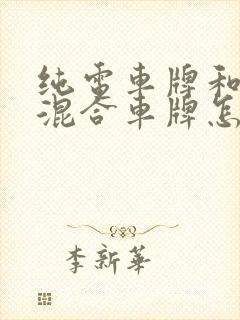 纯電車牌和
混合車牌怎
李新華